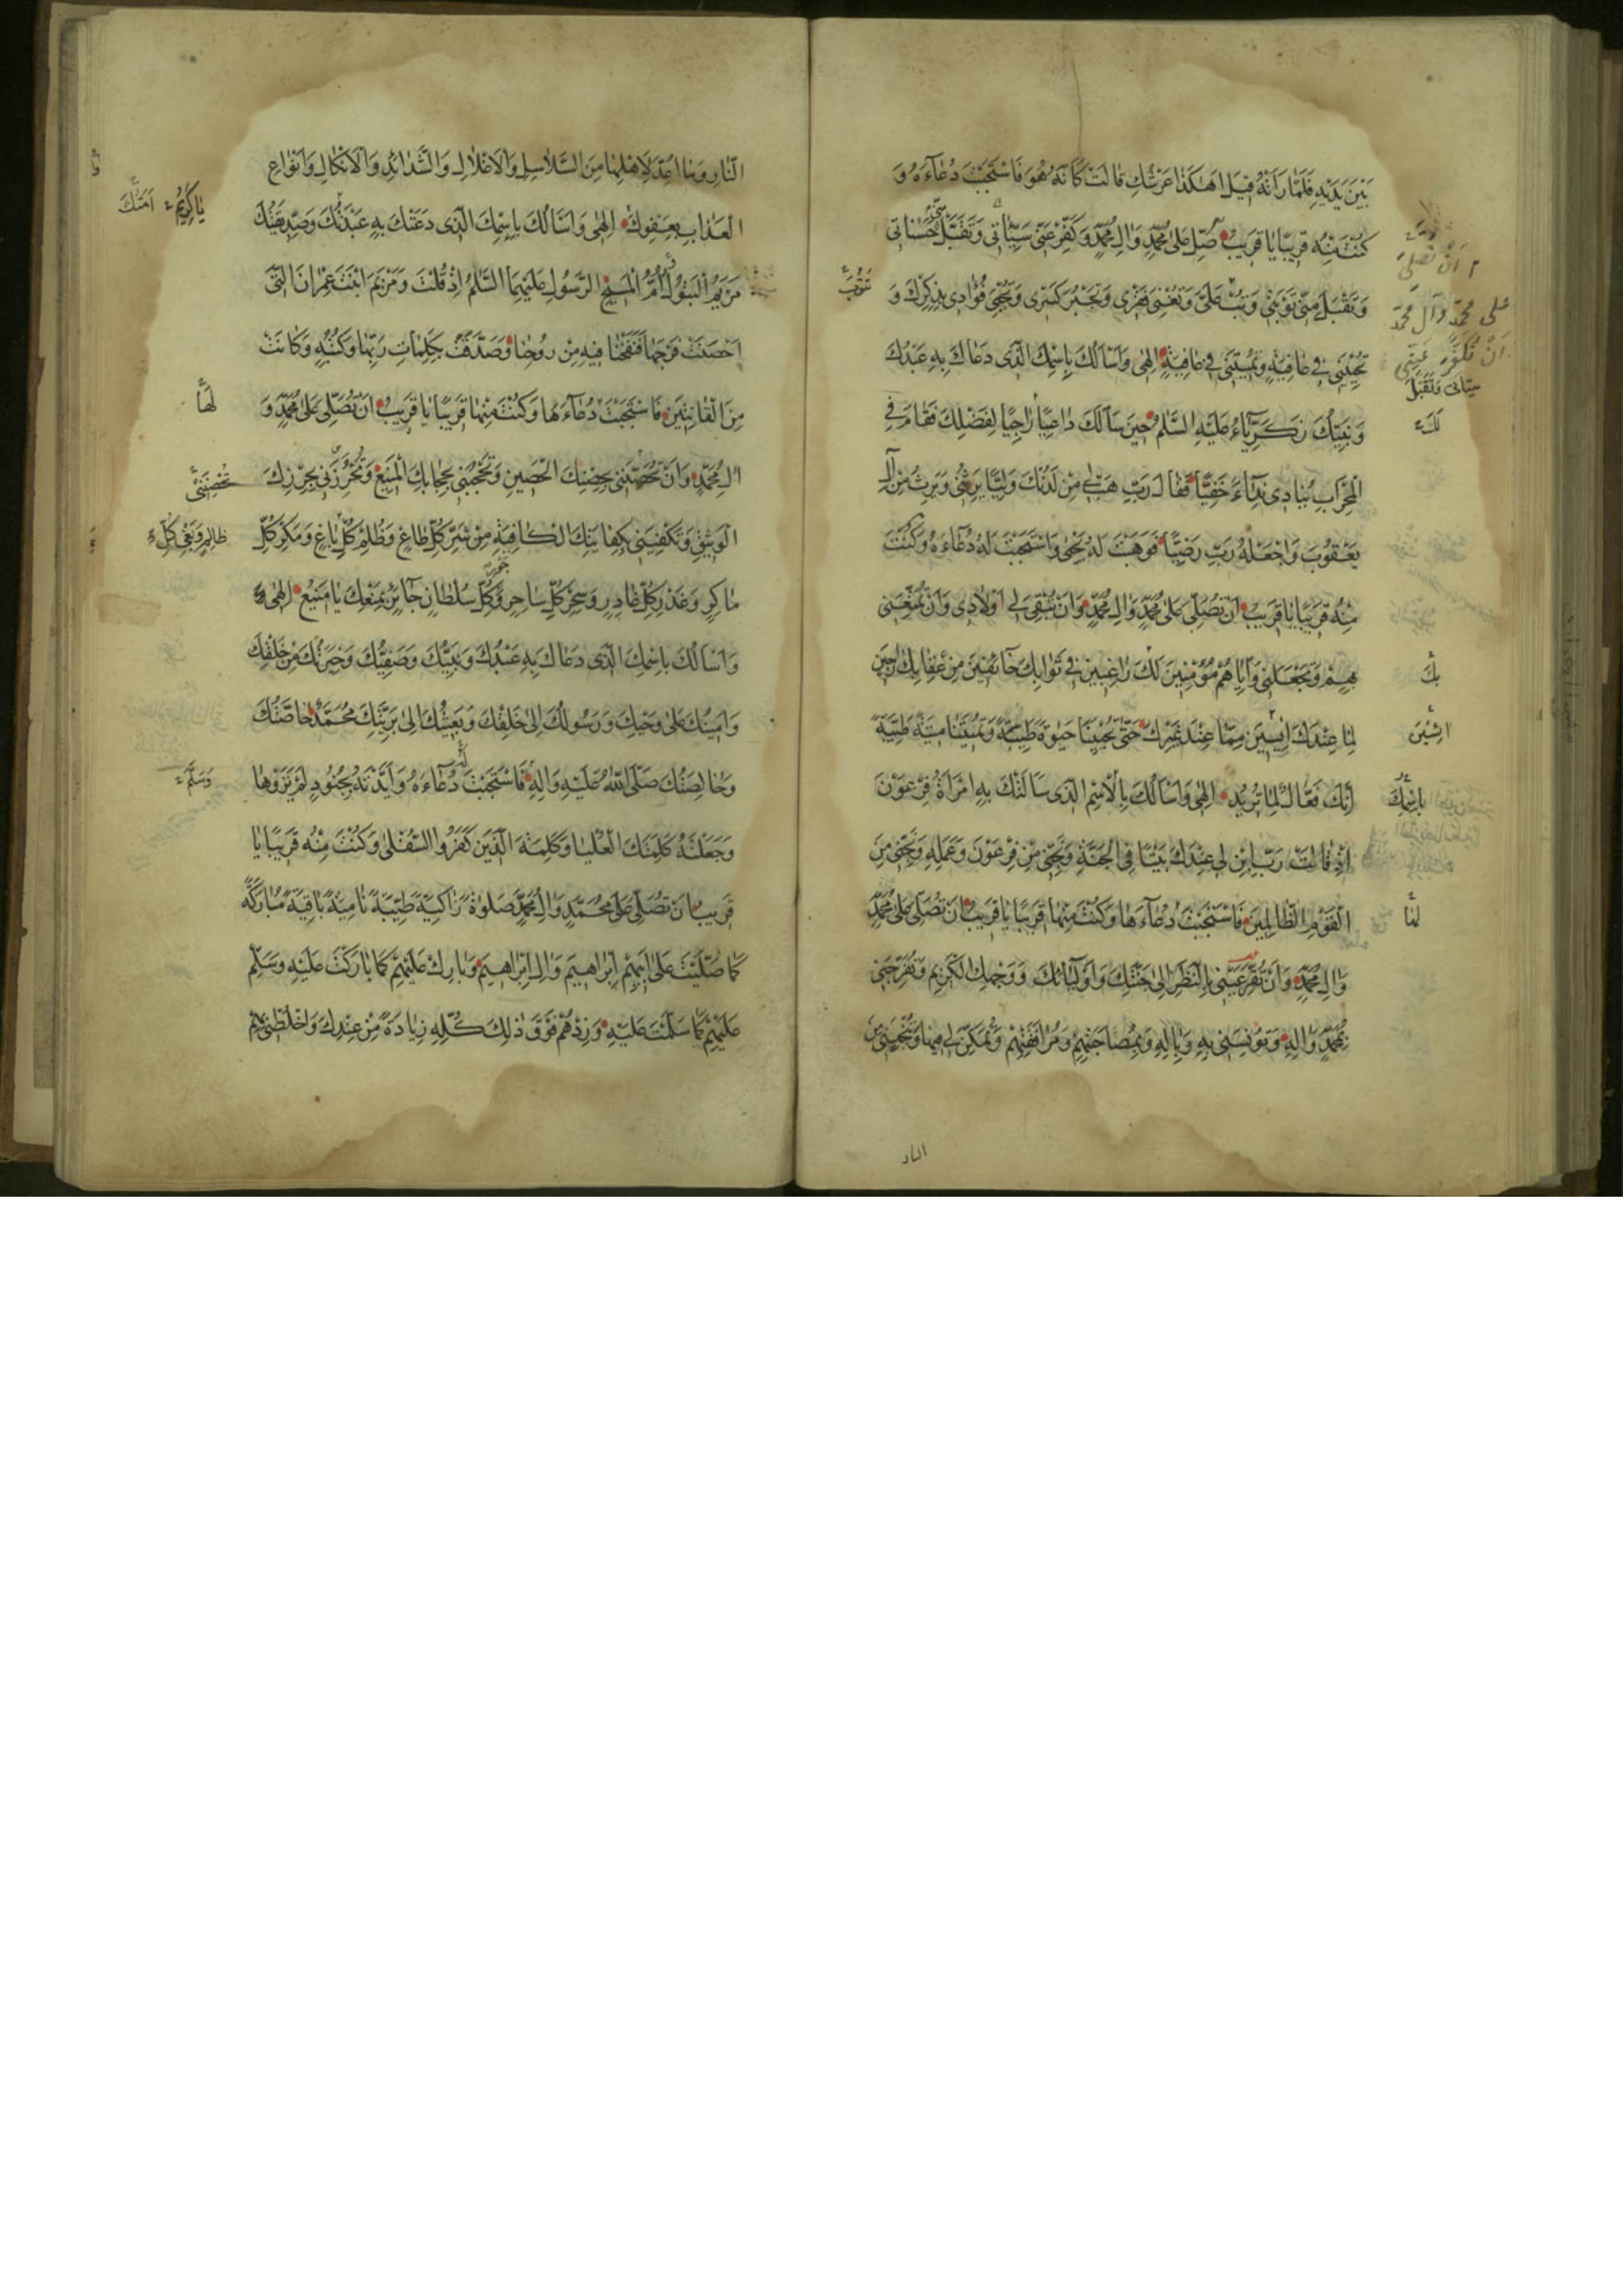 بَيْنَ يَدَيْهِ فَلَمَّا رَاَتْهُ قِيلَ اَهٰكَذَا عَرْشُكِ قَالَتْ كَاَنَّهُ هُوَ فَاسْتَجَبْتَ دُعَآءَهُ وَ
كُنْتَ مِنْهُ قَرِيبًا يَا قَرِيبُ صَلِّ عَلٰى مُحَمَّدٍ وَاٰلِ مُحَمَّدٍ وَكَفِّرْ عَنّى سَيِّئَاتى وَتَقَبَّلْ حَسَنَاتى
وَتَقْبَلَ مِنّى تَوْبَتى وَتُبْ عَلَىَّ وَتُغْنِىَ فَقْرى وَتَجْبُرَ كَسْرى وَتُحْيِىَ فُؤَادى بِذِكْرِكَ وَ
تُحْيِيَنى فى عَافِيَةٍ وَتُمِيتَنى فى عَافِيَةٍ اِلٰهى وَاَسْاَلُكَ بِاسْمِكَ الَّذى دَعَاكَ بِهِ عَبْدُكَ
وَنَبِيُّكَ زَكَرِيَّاءُ عَلَيْهِ السَّلٰمُ حِينَ سَاَلَكَ دَاعِيًا رَاجِيًا لِفَضْلِكَ فَقَامَ فِى
الْمِحْرَابِ يُنَادى نِدَآءً خَفِيًّا فَقَالَ رَبِّ هَبْ لى مِنْ لَدُنْكَ وَلِيًّا يَرِثُنى وَيَرِثُ مِنْ اٰلِ
يَعْقُوبَ وَاجْعَلْهُ رَبِّ رَضِيًّا فَوَهَبْتَ لَهُ يَحْيٰى وَاسْتَجَبْتَ لَهُ دُعَآءَهُ وَكُنْتَ
مِنْهُ قَرِيبًا يَا قَرِيبُ اَنْ تُصَلِّىَ عَلٰى مُحَمَّدٍ وَاٰلِ مُحَمَّدٍ وَاَنْ تُبْقِىَ لى اَوْلَادى وَاَنْ تُمَتِّعَنى
بِهِمْ وَتَجْعَلَنى وَاِيَّاهُمْ مُؤْمِنِينَ لَكَ رَاغِبِينَ فى ثَوَابِكَ خَآئِفِينَ مِنْ عِقَابِكَ رَاجِينَ
لِمَا عِنْدَكَ اٰيِسِينَ مِمَّا عِنْدَ غَيْرِكَ حَتّٰى تُحْيِيَنَا حَيٰوةً طَيِّبَةً وَتُمِيتَنَا مِيتَةً طَيِّبَةً
اِنَّكَ فَعَّالٌ لِمَا تُرِيدُ اِلٰهى وَاَسْاَلُكَ بِالْاِسْمِ الَّذى سَاَلَتْكَ بِهِ امْرَاَةُ فِرْعَوْنَ
اِذْ قَالَتْ رَبِّ ابْنِ لى عِنْدَكَ بَيْتًا فِى الْجَنَّةِ وَنَجِّنى مِنْ فِرْعَوْنَ وَعَمَلِهِ وَنَجِّنى مِنَ
الْقَوْمِ الظَّالِمِينَ فَاسْتَجَبْتَ دُعَآءَهَا وَكُنْتَ مِنْهَا قَرِيبًا يَا قَرِيبُ اَنْ تُصَلِّىَ عَلٰى مُحَمَّدٍ
وَاٰلِ مُحَمَّدٍ وَاَنْ تُقِرَّ عَيْنى بِالنَّظَرِ اِلٰى جَنَّتِكَ وَاَوْلِيَآئِكَ وَوَجْهِكَ الْكَرِيمِ وَتُفَرِّحَنى
بِمُحَمَّدٍ وَاٰلِهِ وَتُؤْنِسَنى بِهِ وَبِاٰلِهِ وَبِمُصَاحَبَتِهِمْ وَمُرَافَقَتِهِمْ وَتُمَكِّنَ لى فِيهَا وَتُنْجِيَنى مِنَ
النار
اَنْ تُصَلِّىَ
عَلى مُحَمَّدٍ وَآل مُحَمَّدٍ
اَنْ تُكَفِّرَ عَنّى
سيّئاتى وَتَقْبَل
لَكَ
بِكَ
بِاسْمِكَ
لَهَا
النَّارِ وَمَا اُعِدَّ لِاَهْلِهَا مِنَ السَّلَاسِلِ وَالْاَغْلَالِ وَالشَّدَائِدِ وَالْاَنْكَالِ وَاَنْوَاعِ
الْعَذَابِ بِعَفْوِكَ اِلٰهى وَاَسْاَلُكَ بِاسْمِكَ الَّذى دَعَتْكَ بِهِ عَبْدَتُكَ وَصِدِّيقَتُكَ
مَرْيَمُ الْبَتُولُ وَاُمُّ الْمَسِيحِ الرَّسُولِ عَلَيْهِمَا السَّلٰمُ اِذْ قُلْتَ وَمَرْيَمَ ابْنَتَ عِمْرَانَ الَّتى
اَحْصَنَتْ فَرْجَهَا فَنَفَخْنَا فِيهِ مِنْ رُوحِنَا وَصَدَّقَتْ بِكَلِمَاتِ رَبِّهَا وَكُتُبِهِ وَكَانَتْ
مِنَ الْقَانِتِينَ فَاسْتَجَبْتَ دُعَآءَهَا وَكُنْتَ مِنْهَا قَرِيبًا يَا قَرِيبُ اَنْ تُصَلِّىَ عَلٰى مُحَمَّدٍ وَ
اٰلِ مُحَمَّدٍ وَاَنْ تُحَصِّنَنى بِحِصْنِكَ الْحَصِينِ وَتَحْجُبَنى بِحِجَابِكَ الْمَنِيعِ وَتُحْرِزَنى بِحِرْزِكَ
الْوَثِيقِ وَتَكْفِيَنى بِكِفَايَتِكَ الْكَافِيَةِ مِنْ شَرِّ كُلِّ طَاغٍ وَظُلْمِ كُلِّ بَاغٍ وَمَكْرِ كُلِّ
مَاكِرٍ وَغَدْرِ كُلِّ غَادِرٍ وَسِحْرِ كُلِّ سَاحِرٍ وَكُلِّ سُلْطَانٍ جَآئِرٍ بِمَنْعِكَ يَا مَنِيعُ اِلٰهى
وَاَسْاَلُكَ بِاسْمِكَ الَّذى دَعَاكَ بِهِ عَبْدُكَ وَنَبِيُّكَ وَصَفِيُّكَ وَخِيَرَتُكَ مِنْ خَلْقِكَ
وَاَمِينُكَ عَلٰى وَحْيِكَ وَرَسُولُكَ اِلٰى خَلْقِكَ وَبَعِيثُكَ اِلٰى بَرِيَّتِكَ مُحَمَّدٌ خَاصَّتُكَ
وَخَالِصَتُكَ صَلَّى اللهُ عَلَيْهِ وَاٰلِهِ فَاسْتَجَبْتَ دُعَآءَهُ وَاَيَّدْتَهُ بِجُنُودٍ لَمْ يَرَوْهَا
وَجَعَلْتَ كَلِمَتَكَ الْعُلْيَا وَكَلِمَةَ الَّذِينَ كَفَرُوا السُّفْلٰى وَكُنْتَ مِنْهُ قَرِيبًا يَا
قَرِيبُ اَنْ تُصَلِّىَ عَلٰى مُحَمَّدٍ وَاٰلِ مُحَمَّدٍ صَلٰوةً زَاكِيَةً طَيِّبَةً نَامِيَةً بَاقِيَةً مُبَارَكَةً
كَمَا صَلَّيْتَ عَلٰى اَبِيهِمْ اِبْرَاهِيمَ وَاٰلِ اِبْرَاهِيمَ وَبَارِكْ عَلَيْهِمْ كَمَا بَارَكْتَ عَلَيْهِ وَسَلِّمْ
عَلَيْهِمْ كَمَا سَلَّمْتَ عَلَيْهِ وَزِدْهُمْ فَوْقَ ذٰلِكَ كُلِّهِ زِيَادَةً مِنْ عِنْدِكَ وَاخْلُطْنى بِهِمْ
يَا كَرِيمُ
اَمَتُكَ
لَهَا
ظَالِمٍ وَبَغْىِ كُلِّ
وَسَلَّمَ